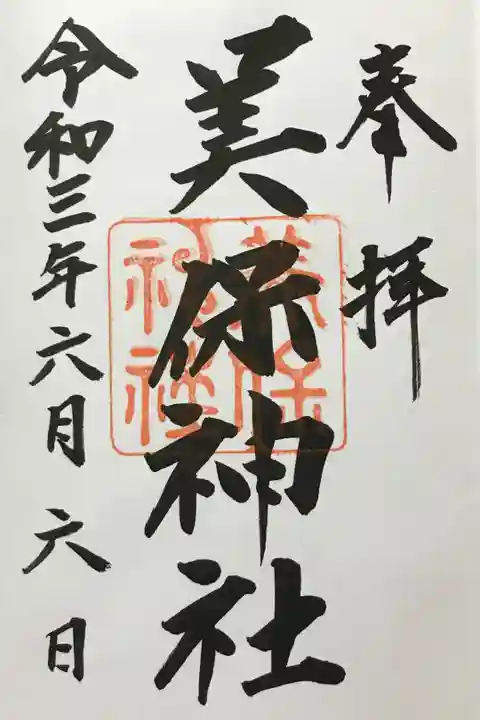 奉拝
美保神社
令和三年六月六日
美保
神社